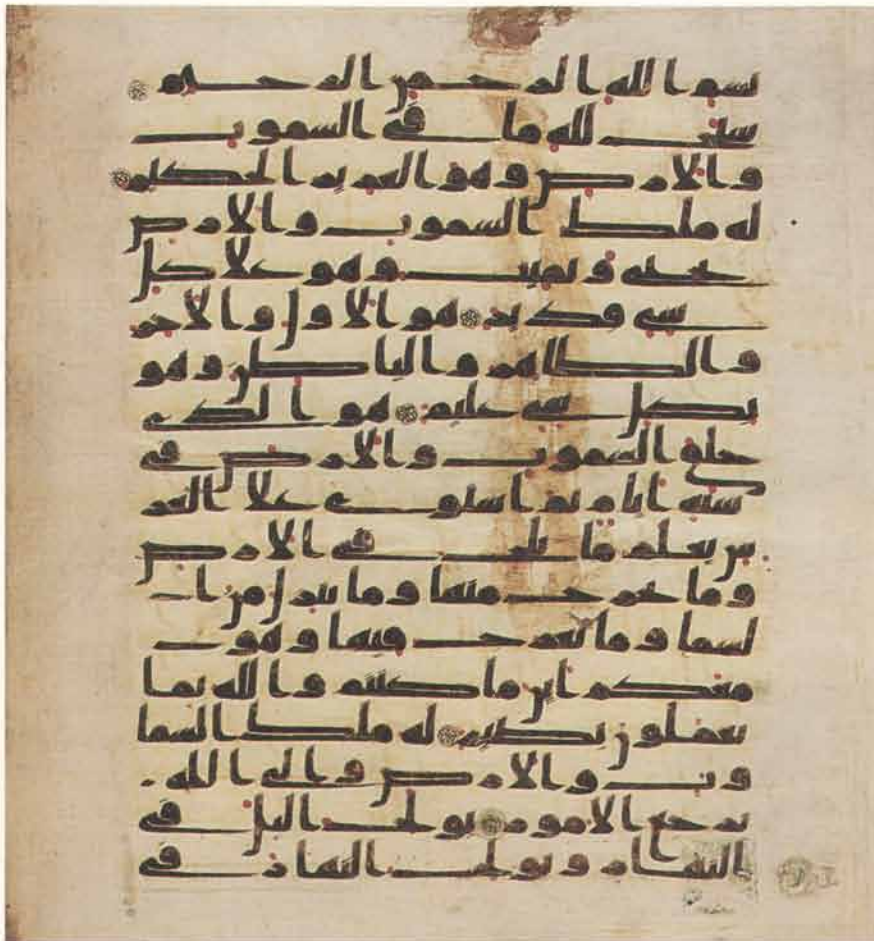 بسم الله الرحمن الرحيم
سبح لله ما في السموت
والارض وهو العزيز الحكيم
له ملك السموت والارض
يحيي ويميت وهو علا كل
شي قدير هو الاول والاخر
والظاهر والباطن وهو
بكل شي عليم هو الذي
خلق السموت والارض في
ستة ايام ثم استوى علا العر
ش يعلم ما يلج في الارض
وما يخرج منها وما ينزل من ا
لسما وما يعرج فيها وهو
معكم اين ما كنتم والله بما
تعملون بصير له ملك السما
وت والارض والى الله
ترجع الامور يولج اليل في
النهار ويولج النهار في